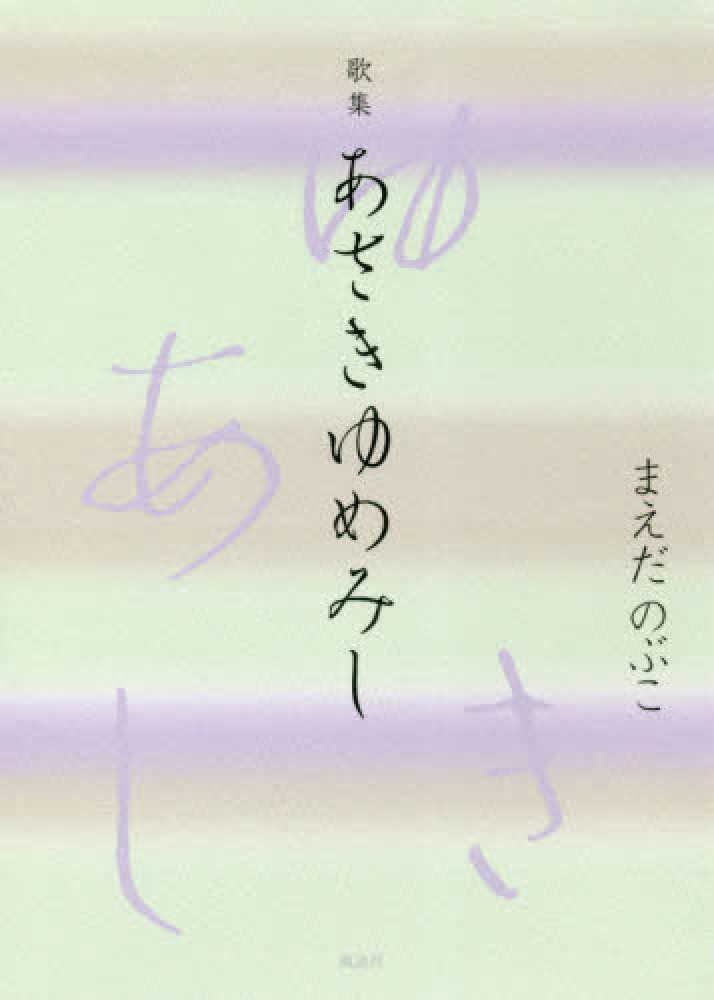 歌集
あさきゆめみし
まえだのぶこ
ゆ
あ
き
し